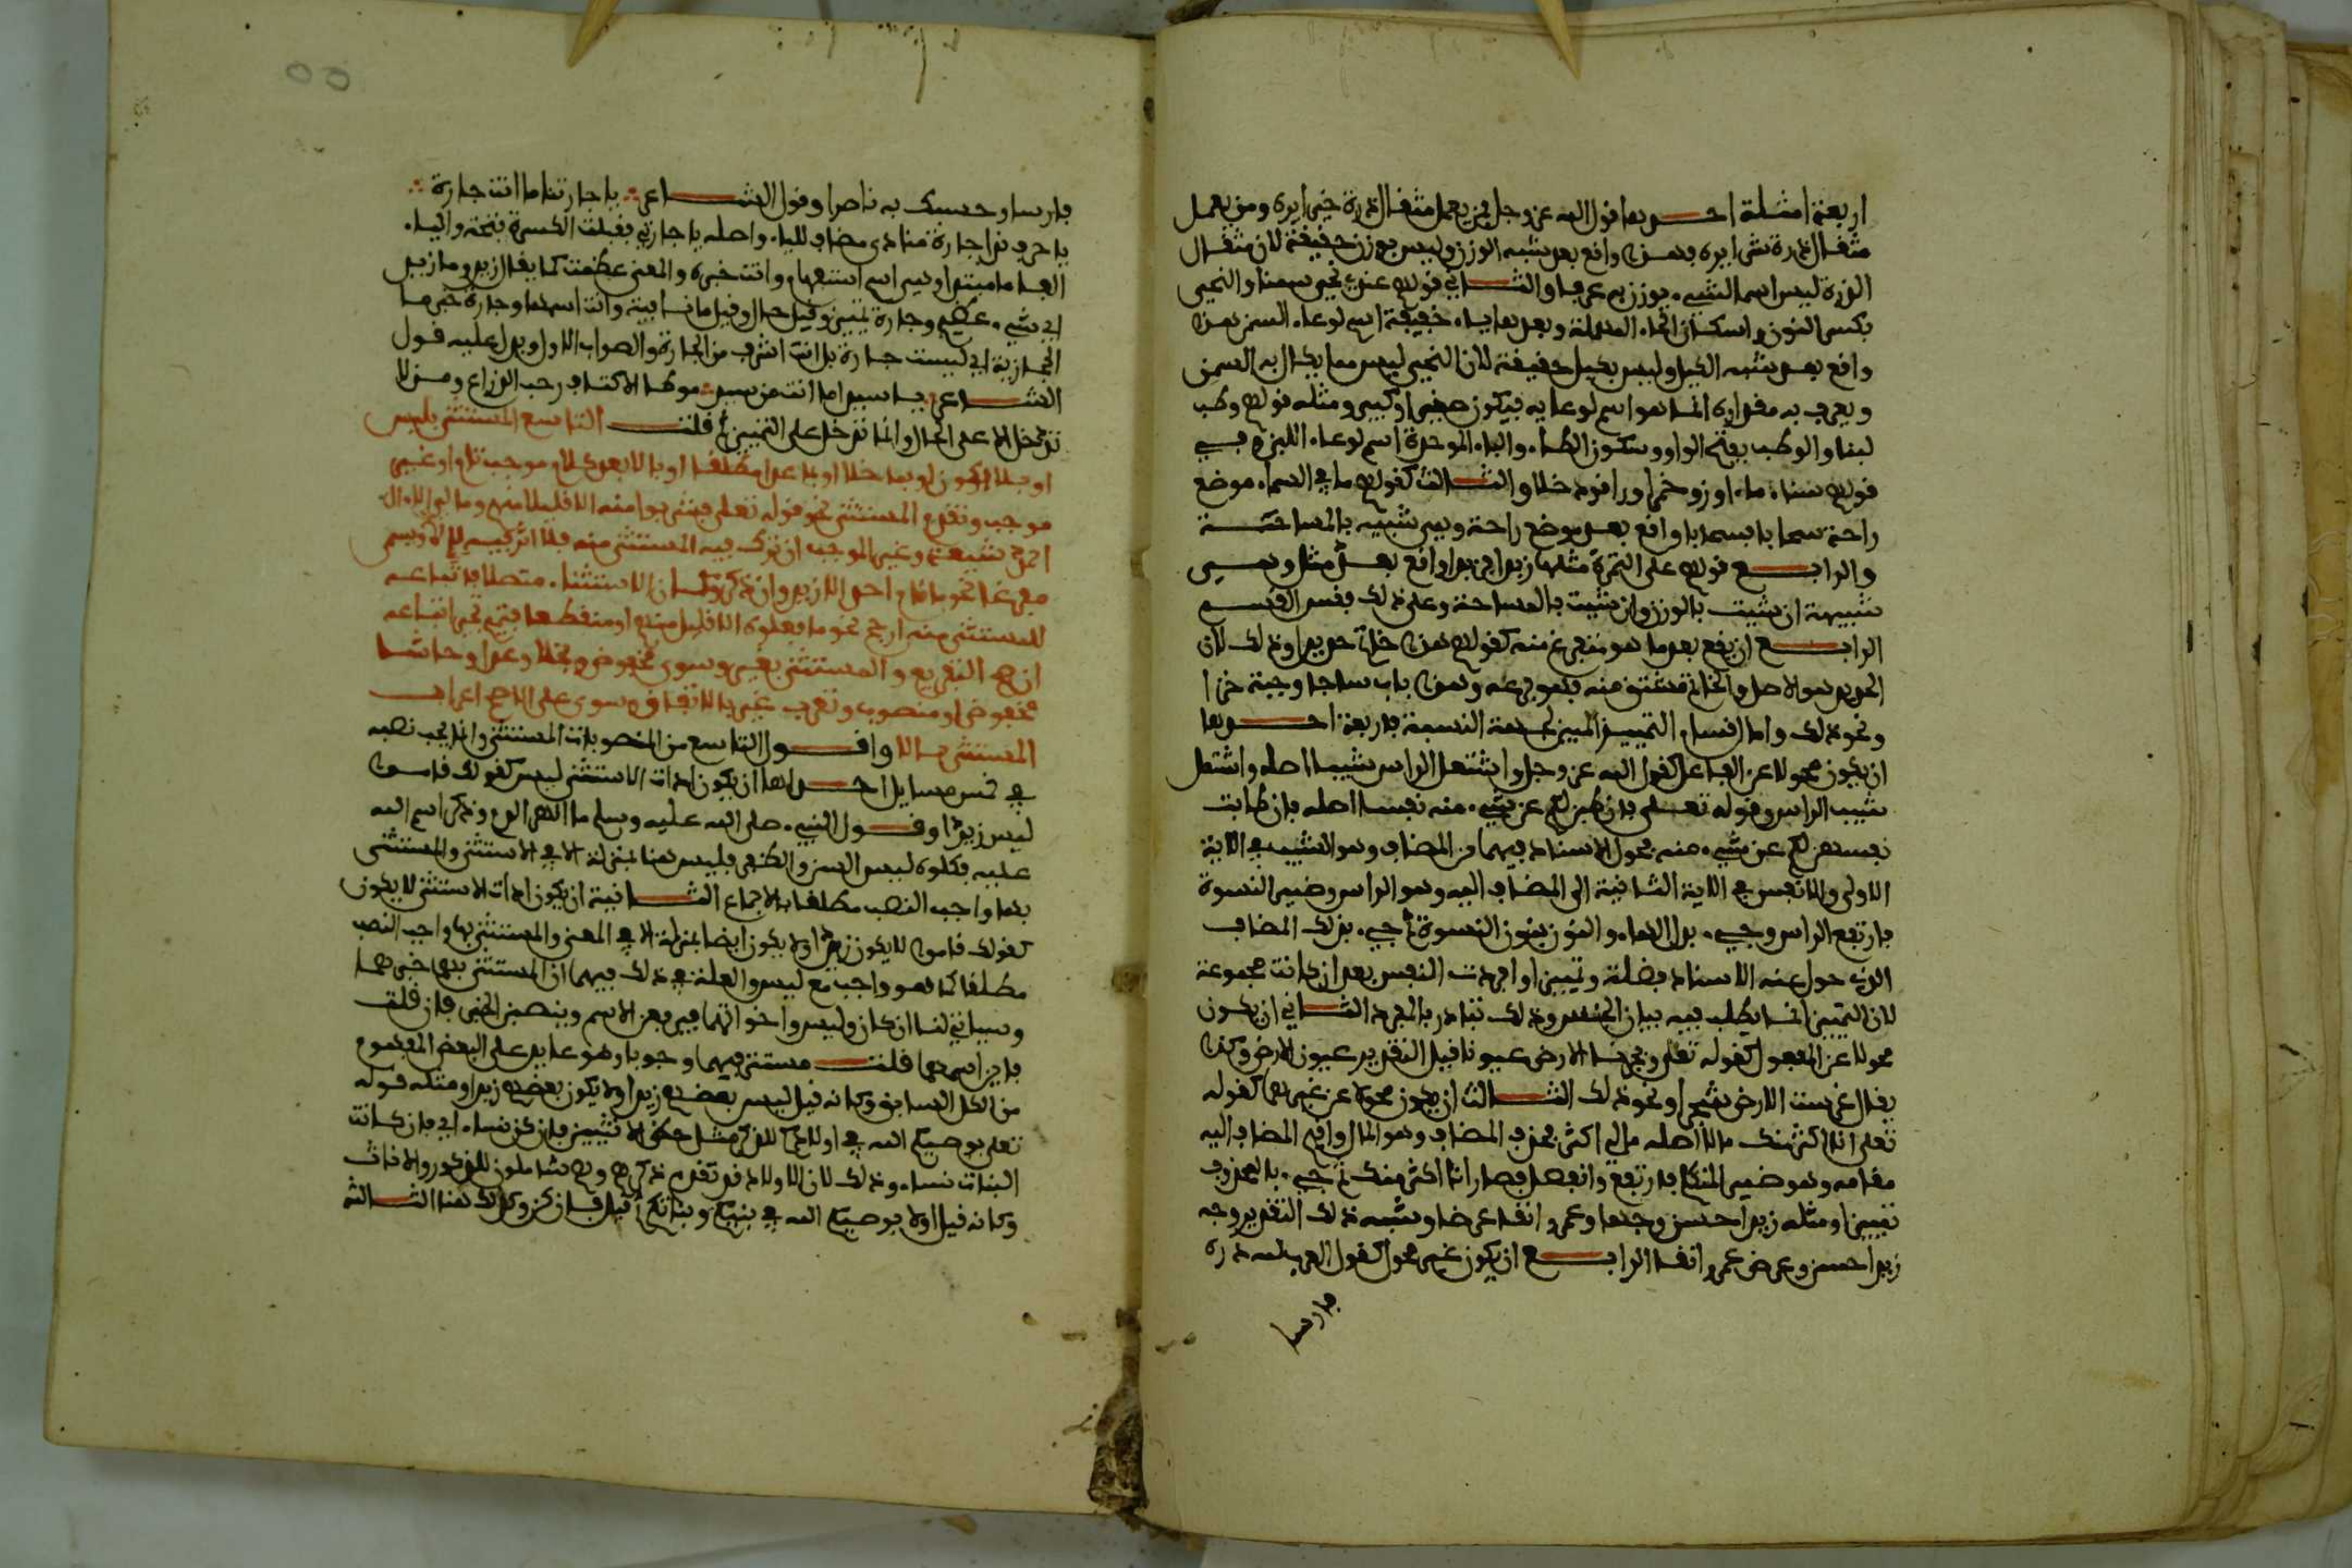 اربعة امثلة احدها قول الله عز وجل فمن يعمل مثقال ذرة خيرا يره ومن يعمل
مثقال ذرة شرا يره فهذا واقع بعد شبه الوزن وليس بوزن حقيقة لان مثقال
الذرة ليس اسما لشيء يوزن به عرفا والثاني قولهم عندي نحي سمنا والنحي
بكسر النون واسكان الحاء المهملة وبعدها ياء خفيفة اسم لوعاء السمن فهذا
واقع بعد شبه الكيل وليس بكيل حقيقة لان النحي ليس مما يكال به السمن
ويعرف به مقداره انما هو اسم لوعايه فيكون صغيرا وكبيرا ومثله قولهم وطب
لبنا والوطب بفتح الواو وسكون الطاء والباء الموحدة اسم لوعاء اللبن
قولهم سقاء ماء او زق خمرا وراقود خلا والثالث كقولهم ما في السماء موضع
راحة سحابا فسحابا واقع بعد موضع راحة وهي شبيهة بالمساحة
والرابع قولهم على التمرة مثلها زبدا فزبدا واقع بعد مثل وهي
شبيهة ان شيت بالوزن وان شيت بالمساحة وعلى ذلك فقس القسم
الرابع ان يقع بعد ما هو متفرع منه كقولهم هذا خاتم حديدا وذلك لان
الحديد هو الاصل والخاتم مشتق منه فهو فرعه وهذا باب ساجا وجبة خزا
ونحو ذلك واما اقسام التمييز المبين لجهة النسبة فاربعة احدها
ان يكون محولا عن الفاعل كقول الله عز وجل واشتعل الراس شيبا اصله واشتعل
شيب الراس وقوله تعلى فان طبن لكم عن شيء منه نفسا اصله فان طابت
نفسهن لكم عن شيء منه فحول الاسناد فيهما عن المضاف وهو الشيب في الاية
الاولى والانفس في الاية الثانية الى المضاف اليه وهو الراس وضمير النسوة
فارتفع الراس وجيء بدل الهاء والنون بنون النسوة ثم جيء بذلك المضاف
الذي حول عنه الاسناد فضلة وتمييزا وافردت النفس بعد ان كانت مجموعة
لان التمييز انما يطلب فيه بيان الجنس وذلك يتادى بالمفرد الثاني ان يكون
محولا عن المفعول كقوله تعلى وفجرنا الارض عيونا قيل التقدير عيون الارض وكذا
يقال غرست الارض شجرا ونحو ذلك الثالث ان يكون محولا عن غيرهما كقوله
تعلى انا اكثر منك مالا اصله مالي اكثر فحذف المضاف وهو المال واقيم المضاف اليه
مقامه وهو ضمير المتكلم فارتفع وانفصل فصار انا اكثر منك ثم جيء بالمحذوف
تمييزا ومثله زيد احسن وجها وعمرو انقا عرضا وشبه ذلك التقدير وجه
زيد احسن وعرض عمرو انقا الرابع ان يكون غير محول كقول العرب لله دره
فارسا
فارسا وحسبك به ناصرا وقول الشاعر يا جارتا ما انت جارة
يا حرف ندا جارة منادى مضاف للياء واصله يا جارتي فقلبت الكسرة فتحة والياء
الفا ما مبتدا وهي اسم استفهام وانت خبره والمعنى عظمت كما يقال زيد وما زيد
اي شيء عظيم وجارة تمييز وقيل حال وقيل ما نافية وانت اسمها وجارة خبر ما
الحجازية اي ليست جارة بل انت اشرف من الجارة والصواب الاول ويدل عليه قول
الشاعر يا سيدا ما انت من سيد موطا الاكناف رحب الذراع ومن لا
تدخل الا على الحال وانما تدخل على التمييز ثم قلت التاسع المستثنى بليس
او بلا يكون او بما خلا او بما عدا مطلقا او بالا بعد كلام موجب تام او غير
موجب وتقدم المستثنى نحو قوله تعلى فشربوا منه الا قليلا منهم وما لي الا ال
احمد شيعة وغير الموجب ان ترك فيه المستثنى منه فلا اثر فيه لالا ويسمى
مفرغا نحو ما قام احد الا زيد وان ذكر وكان الاستثناء متصلا فاتباعه
للمستثنى منه ارجح نحو ما فعلوه الا قليل منهم او منقطعا فتميم تجيز اتباعه
ان صح التفريع والمستثنى بغير وسوى مخفوض وبخلا وعدا وحاشا
مخفوض او منصوب وتعرب غير بالاتفاق وسوى على الاصح اعراب
المستثنى بالا واقول التاسع من المنصوبات المستثنى وانما يجب نصبه
في خمس مسايل احداها ان يكون ادات الاستثنى ليس كقولك قاموا
ليس زيدا وقول النبيء صلى الله عليه وسلم ما انهر الدم وذكر اسم الله
عليه فكلوه ليس السن والظفر فليس هنا بمنزلة الا في الاستثنى والمستثنى
بها واجب النصب مطلقا بالاجماع الثانية ان يكون ادات الاستثنى لا يكون
كقولك قاموا لا يكون زيدا ولا يكون ايضا بمنزلة الا في المعنى والمستثنى بها واجب النصب
مطلقا كما هو واجب مع ليس والعلة في ذلك فيهما ان المستثنى بهما خبرهما
وسياتي لنا ان كان وليس واخواتهما يرفعن الاسم وينصبن الخبر فان قلت
فاين اسمهما قلت مستتر فيهما وجوبا وهو عايد على البعض المفهوم
من الكل السابق وكانه قيل ليس بعضهم زيدا ولا يكون بعضهم زيدا ومثله قوله
تعلى يوصيكم الله في اولادكم للذكر مثل حظ الانثيين فان كن نساء اي فان كانت
البنات نساء وذلك لان الاولاد قد تقدم ذكرهم وهم شاملون للذكور والاناث
وكانه قيل اولا يوصيكم الله في بنيكم وبناتكم ثم قيل فان كن وكذلك هنا الثالثة